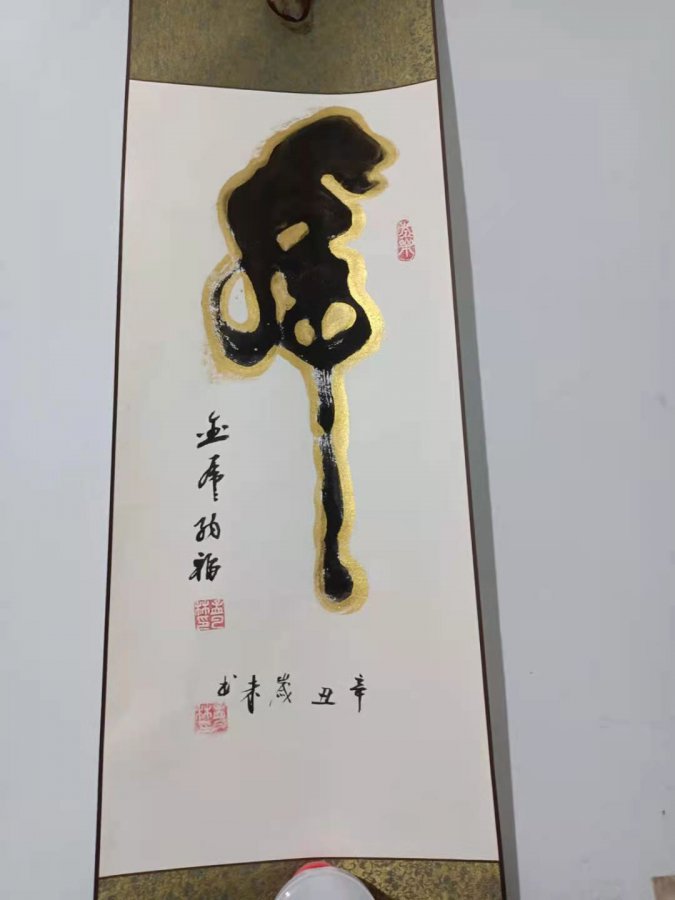 虎
金虎纳福
辛丑岁末书